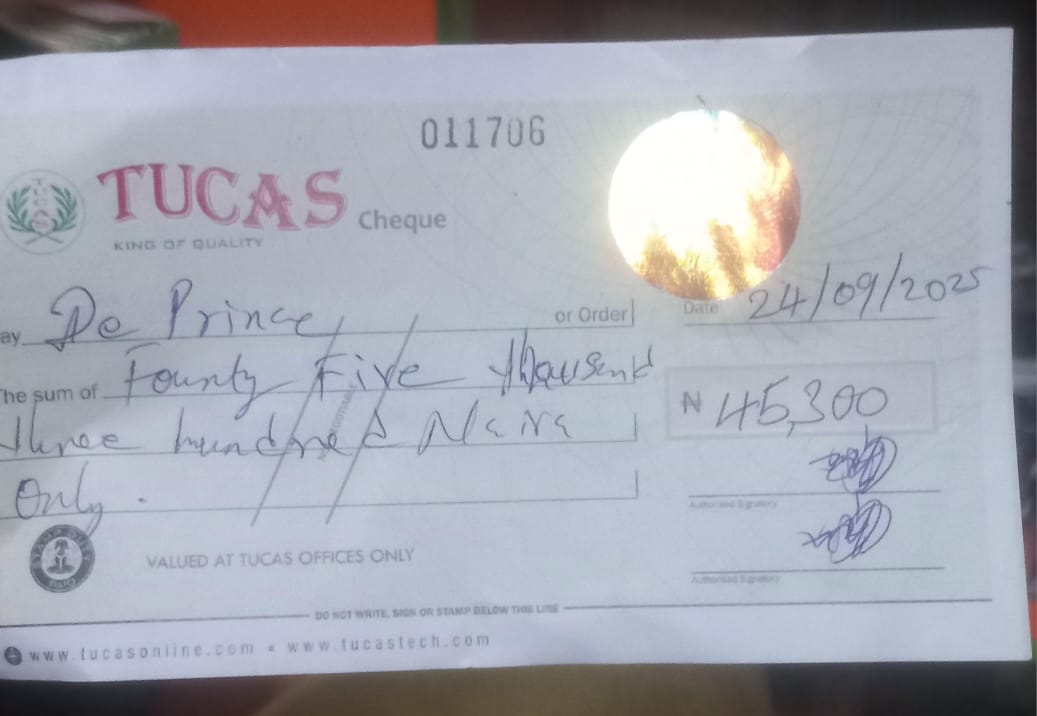 011706
TUCAS Cheque
KING OF QUALITY
ay De Prince or Order
Date 24/09/2025
he sum of Founty Five thousand
three hundred Naira
Only.
₦ 45,300
Authorised Signatory
Authorised Signatory
VALUED AT TUCAS OFFICES ONLY
DO NOT WRITE, SIGN OR STAMP BELOW THIS LINE
www.tucasonline.com • www.tucastech.com